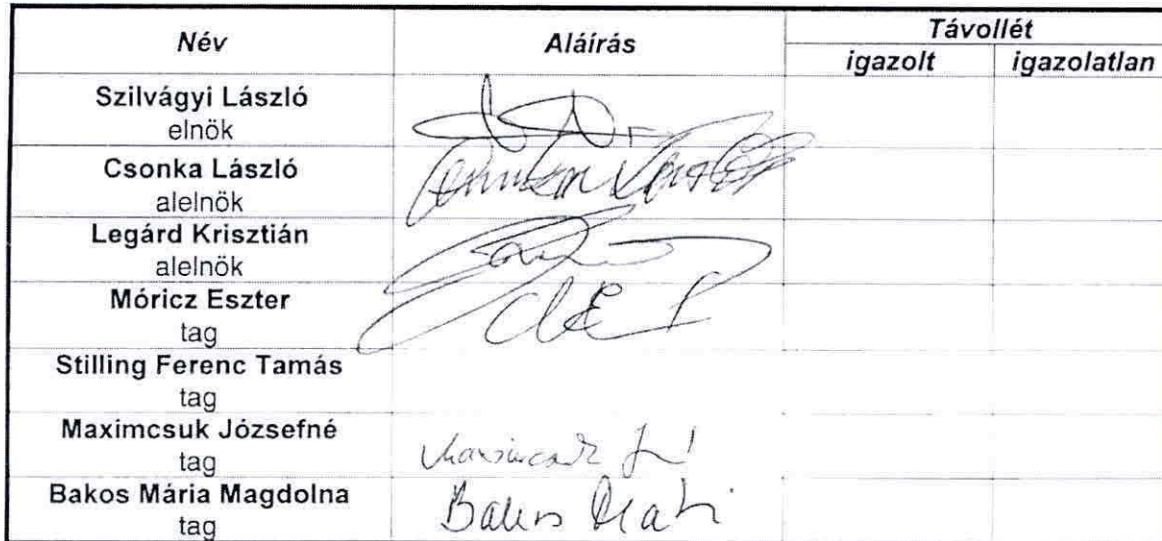 Név Aláírás Távollét
igazolt igazolatlan
Szilvágyi László
elnök
Csonka László
alelnök
Legárd Krisztián
alelnök
Móricz Eszter
tag
Stilling Ferenc Tamás
tag
Maximcsuk Józsefné
tag
Bakos Mária Magdolna
tag
Bakos